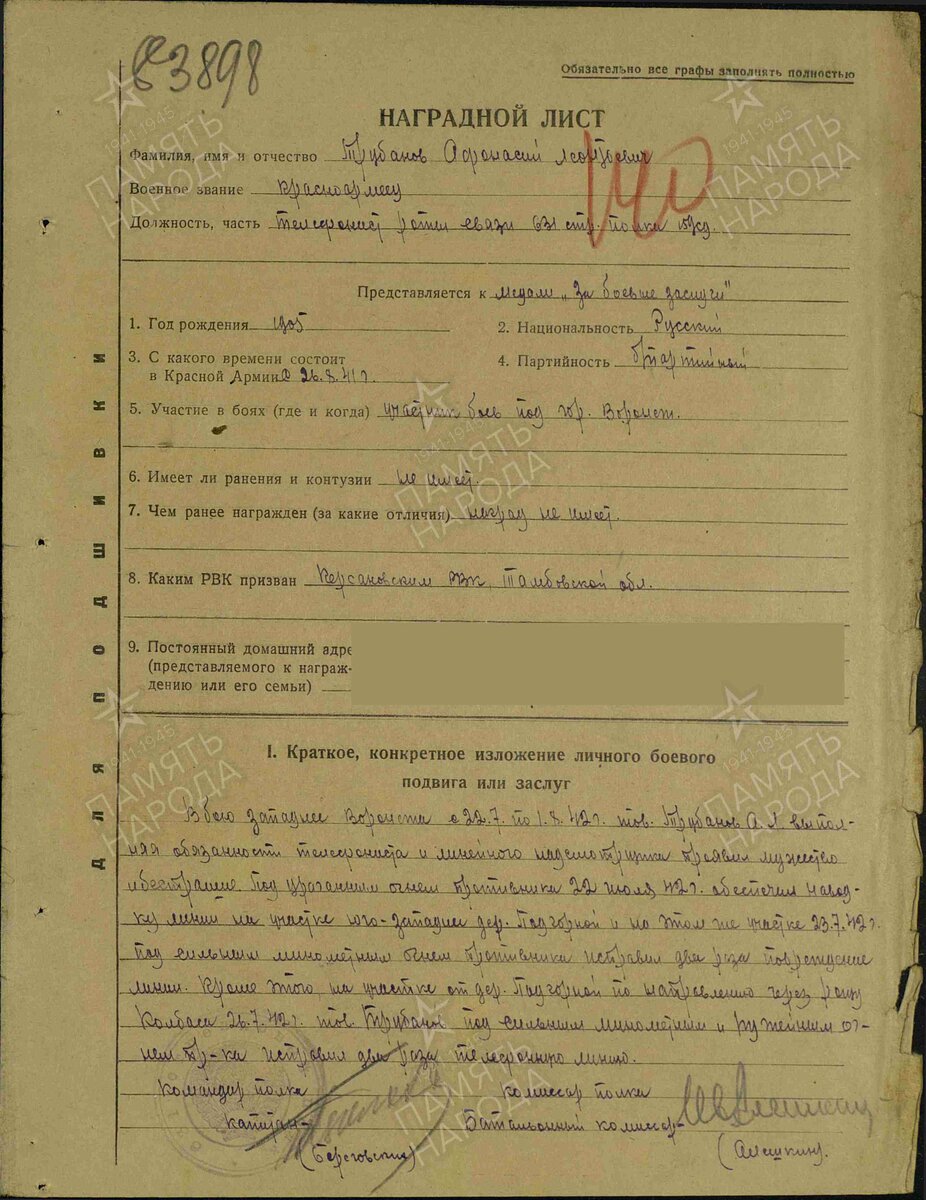 83898
Обязательно все графы заполнять полностью
НАГРАДНОЙ ЛИСТ
Фамилия, имя и отчество Трубанов Афонасий Леонтьевич
Военное звание красноармеец
Должность, часть телефонист роты связи 631 стр. полка 159сд.
Представляется к медали „За боевые заслуги"
1. Год рождения 1905
2. Национальность Русский
3. С какого времени состоит
в Красной Армии с 26.8.41г.
4. Партийность б/партийный
5. Участие в боях (где и когда) участник боев под гор. Воронеж.
6. Имеет ли ранения и контузии не имеет.
7. Чем ранее награжден (за какие отличия) наград не имеет.
8. Каким РВК призван Керсановским РВК, Тамбовской обл.
9. Постоянный домашний адре
(представляемого к награж-
дению или его семьи)
ДЛЯ ПОДШИВКИ
I. Краткое, конкретное изложение личного боевого
подвига или заслуг
В бою западнее Воронежа с 22.7. по 1.8.42г. тов. Трубанов А.Л. выпол-
няя обязанности телефониста и линейного надсмотрщика проявил мужество
и бесстрашие. Под ураганным огнем противника 22 июля 42г. обеспечил навод-
ку линии на участке юго-западнее дер. Подгорной и на этом же участке 23.7.42г.
под сильным минометным огнем противника исправил два раза повреждение
линии. Кроме этого, на участке от дер. Подгорной по направлению через рощу
Колбаса 26.7.42г. тов. Трубанов под сильным минометным и ружейным ог-
нем пр-ка исправил два раза телефонную линию.
Командир полка комиссар полка
капитан- Батальонный комиссар-
(Береговский) (Алешкин).
1941-1945
ПАМЯТЬ
НАРОДА